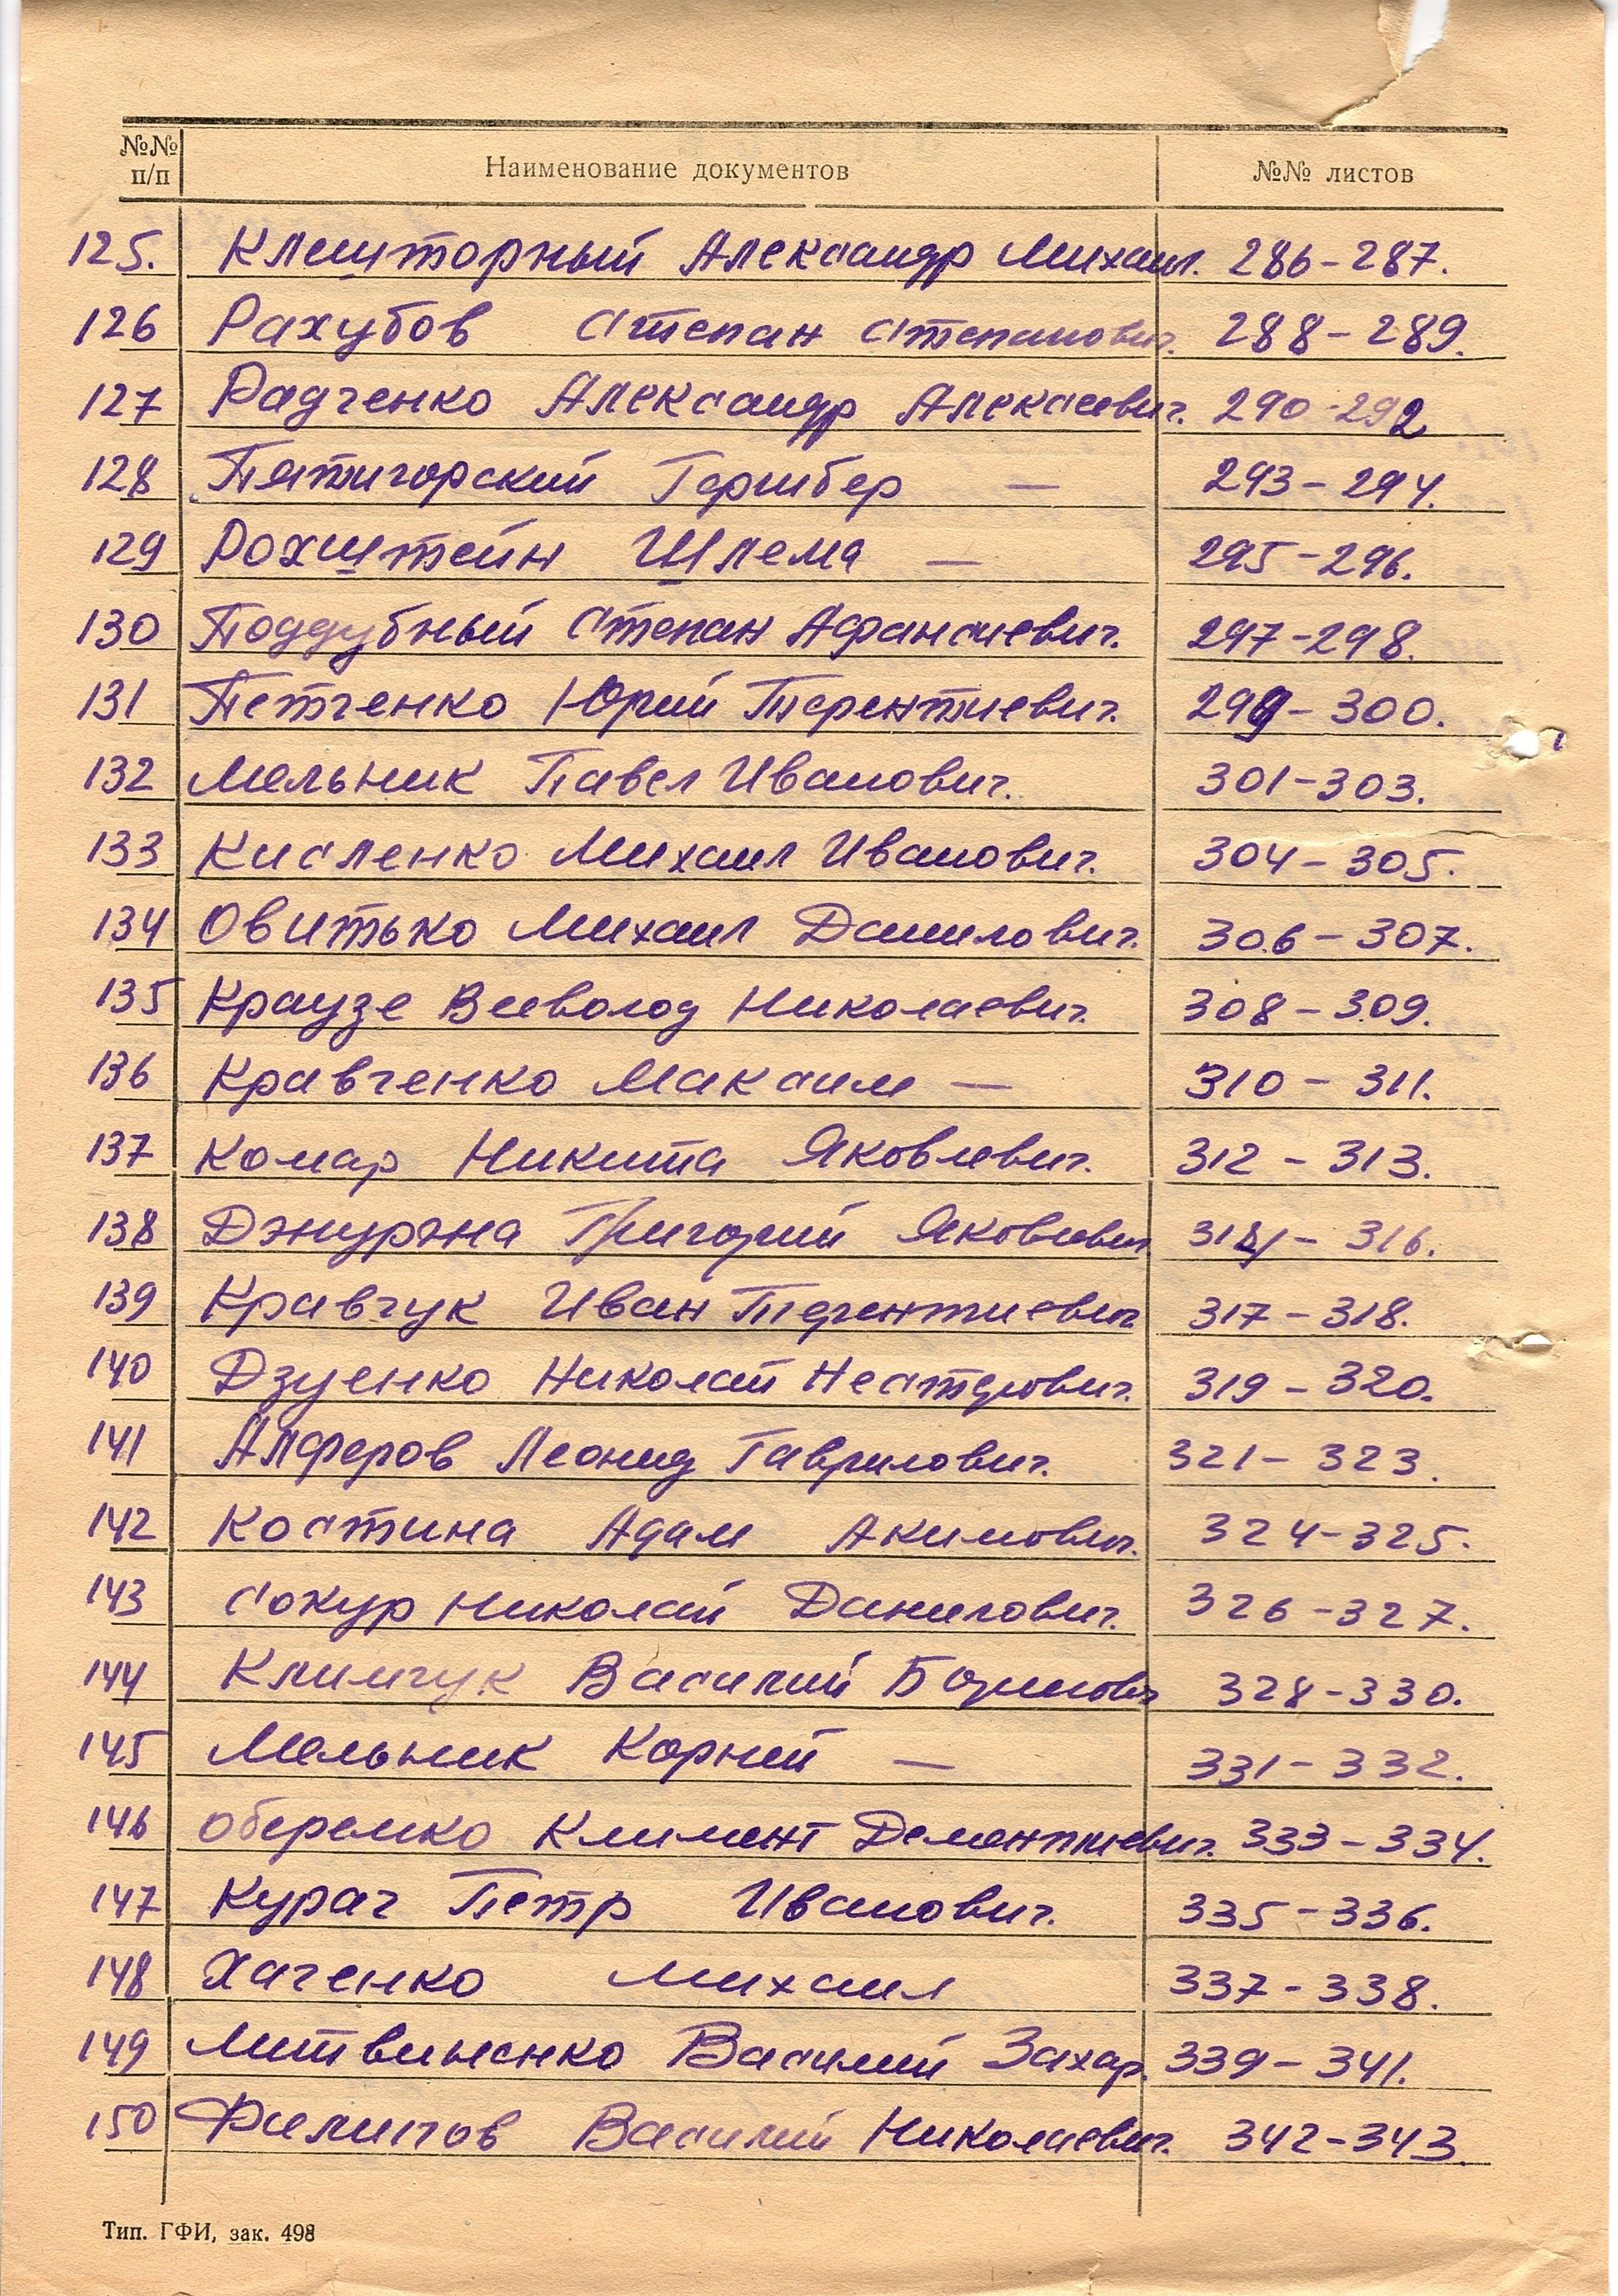 №№ п/п Наименование документов №№ листов
125. Клешторный Александр Михаил. 286-287.
126 Рахубов Степан Степанович. 288-289.
127 Радченко Александр Алексеевич. 290-292
128 Пятигорский Гершбер — 293-294.
129 Рохштейн Шлема — 295-296.
130 Поддубный Степан Афанасиевич. 297-298.
131 Петченко Юрий Терентиевич. 299-300.
132 Мельник Павел Иванович. 301-303.
133 Кисленко Михаил Иванович. 304-305.
134 Овитько Михаил Данилович. 306-307.
135 Краузе Всеволод Николаевич. 308-309.
136 Кравченко Максим — 310-311.
137 Комар Никита Яковлевич. 312-313.
138 Григорий Яковлевич 314-316.
139 Кравчук Иван Терентиевич 317-318.
140 Дзуенко Николай Несторович. 319-320.
141 Алферов Леонид Гаврилович. 321-323.
142 Костина Адам Акимович. 324-325.
143 Сокур Николай Данилович. 326-327.
144 Климчук Василий Борисович 328-330.
145 Мельник Корней — 331-332.
146 Оберемко Климент Дементиевич. 333-334.
147 Курач Петр Иванович. 335-336.
148 Хаченко Михаил 337-338.
149 Литвиненко Василий Захар. 339-341.
150 Филипов Василий Николаевич. 342-343.
Тип. ГФИ, зак. 498